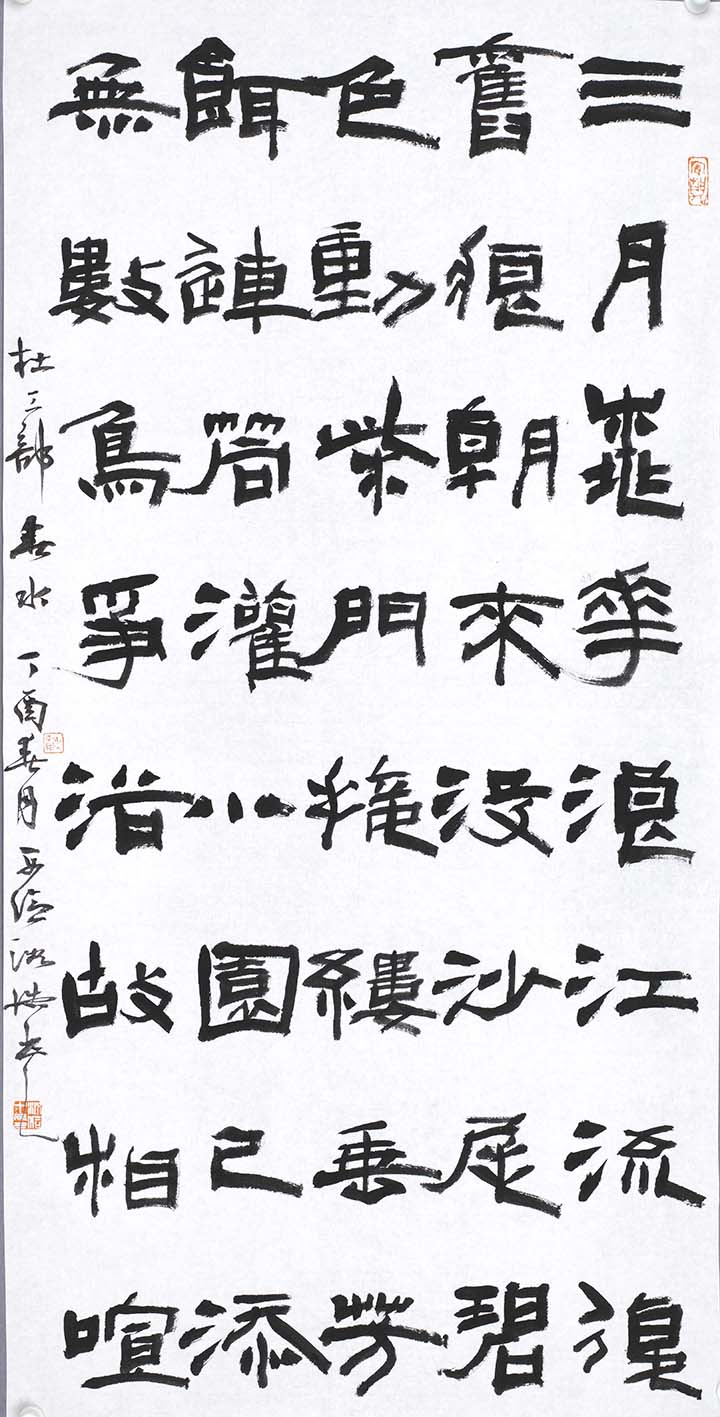 三月桃花浪江流復
舊痕朝來沒沙尾碧
色動柴門接縷垂芳
餌連筒灌小園已添
無數鳥爭浴故相喧
杜工部春水丁酉春月